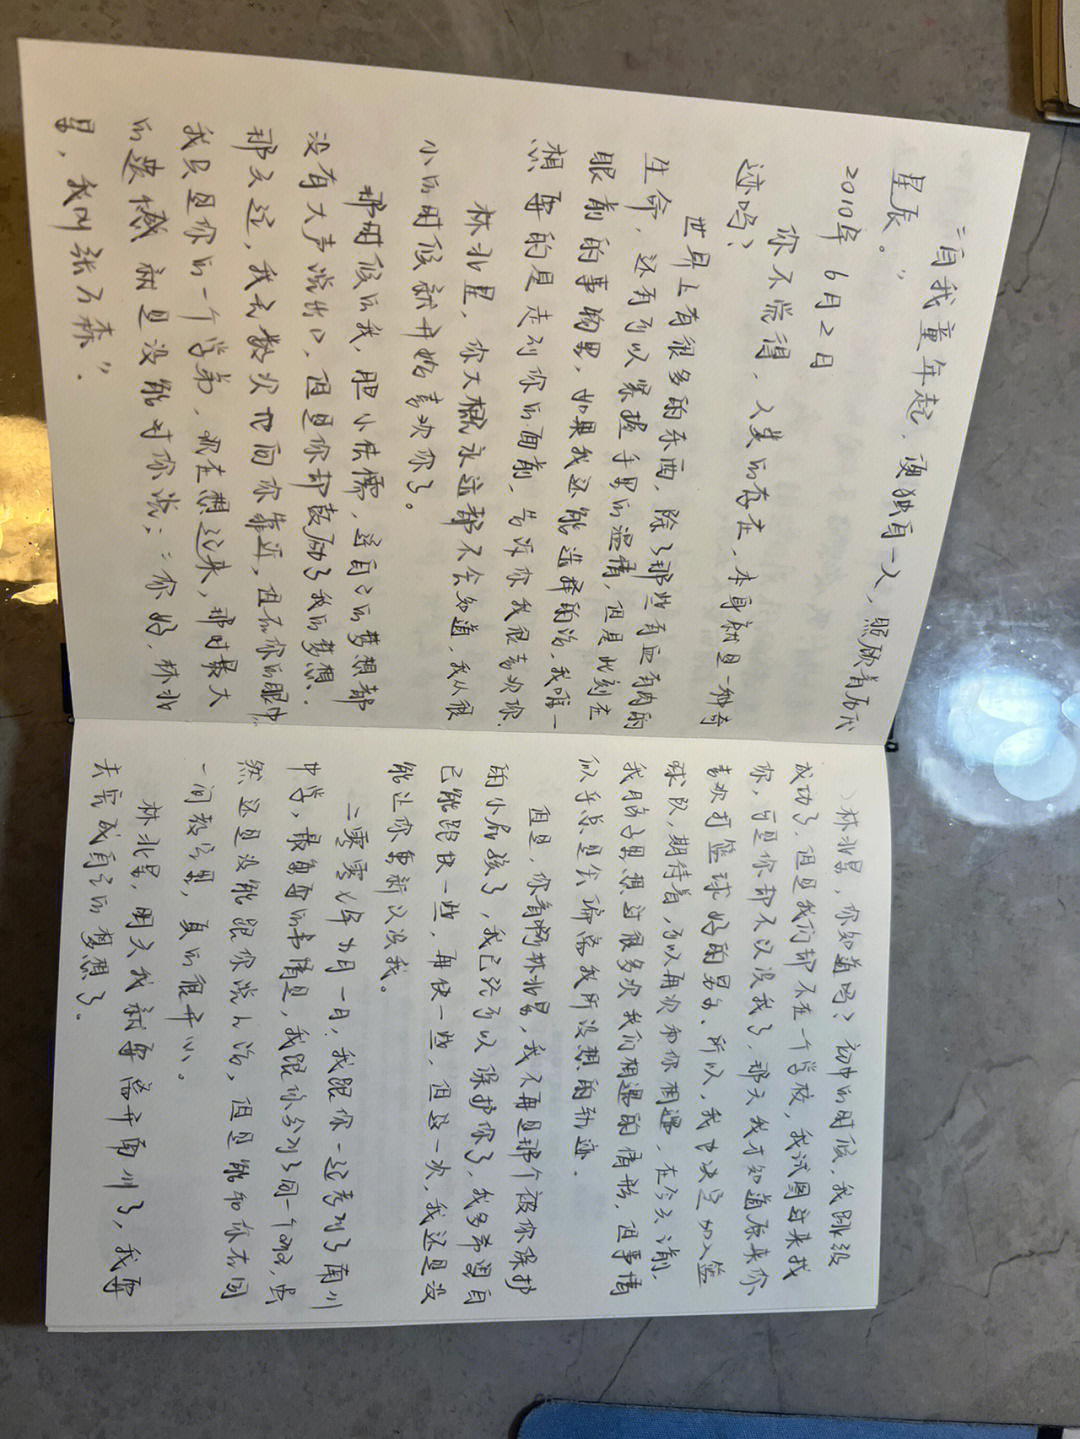 “自我童年起，便独自一人，照顾着历代
星辰。”
2010年6月2日
你不觉得，人类的存在，本身就是一种奇
迹吗？
世界上有很多的东西，除了那些有血有肉的
生命，还有可以掌握手里的温情，但是此刻在
眼前的事物里，如果我还能选择的话，我唯一
想要的是走到你的面前，告诉你我很喜欢你.
林北星，你大概永远都不会知道，我从很
小的时候就开始喜欢你了。
那时候的我，胆小怯懦，连自己的梦想都
没有大声说出口，但是你却鼓励了我的梦想.
那天过，我无数次地向你靠近，但在你的眼中，
我只是你的一个学弟，现在想起来，那时最大
的遗憾就是没能对你说：“你好，林北
星，我叫张万森”.
林北星，你知道吗？初中的时候，我跳级
成功了，但是我们却不在一个学校，我试图过来找
你，可是你却不认识我了，那天我才知道原来你
喜欢打篮球好的男生.所以，我也决定加入篮
球队，期待着，可以再次和你相遇，在今天之前，
我用脑子里想过很多次我们相遇的情形，但事情
似乎总是会偏离我所设想的轨迹.
但是，你看啊林北星，我不再是那个被你保护
的小屁孩了，我已经可以保护你了，我多希望自
己能跑快一些，再快一些，但这一次，我还是没
能让你重新认识我。
二零零七年九月一日，我跟你一起考到了南川
中学，最负面的事情是，我跟你分到了同一个班，虽
然还是没能跟你说上话，但是能和你在同
一间教室里，真的很开心。
林北星，明天我就要离开南川了，我要
去完成自己的梦想了.